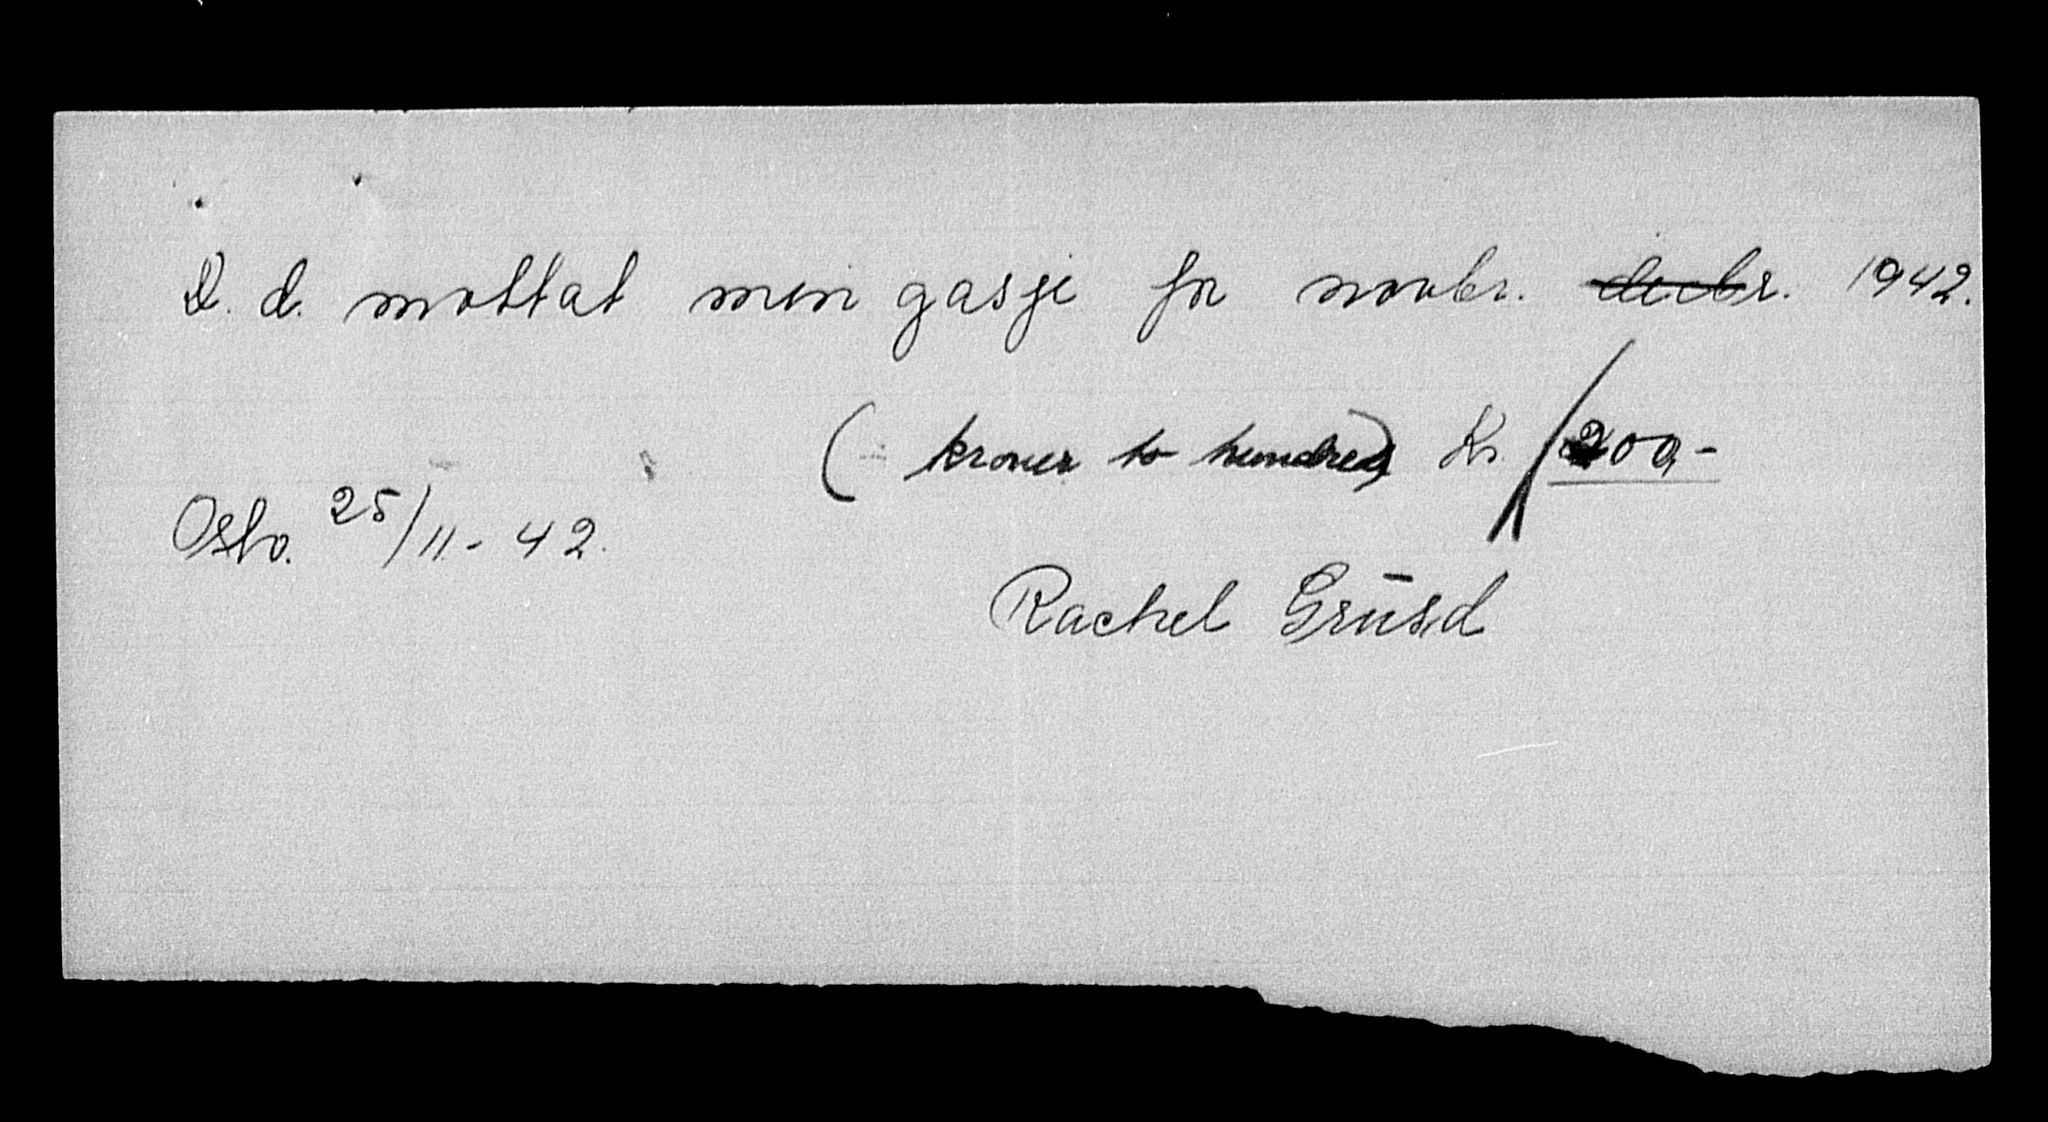 D. d. mottat min gasje for novbr. decbr. 1942.
( kroner to hundre ) Kr. 200,-
Oslo. 25/11-42.
Rachel Grusd